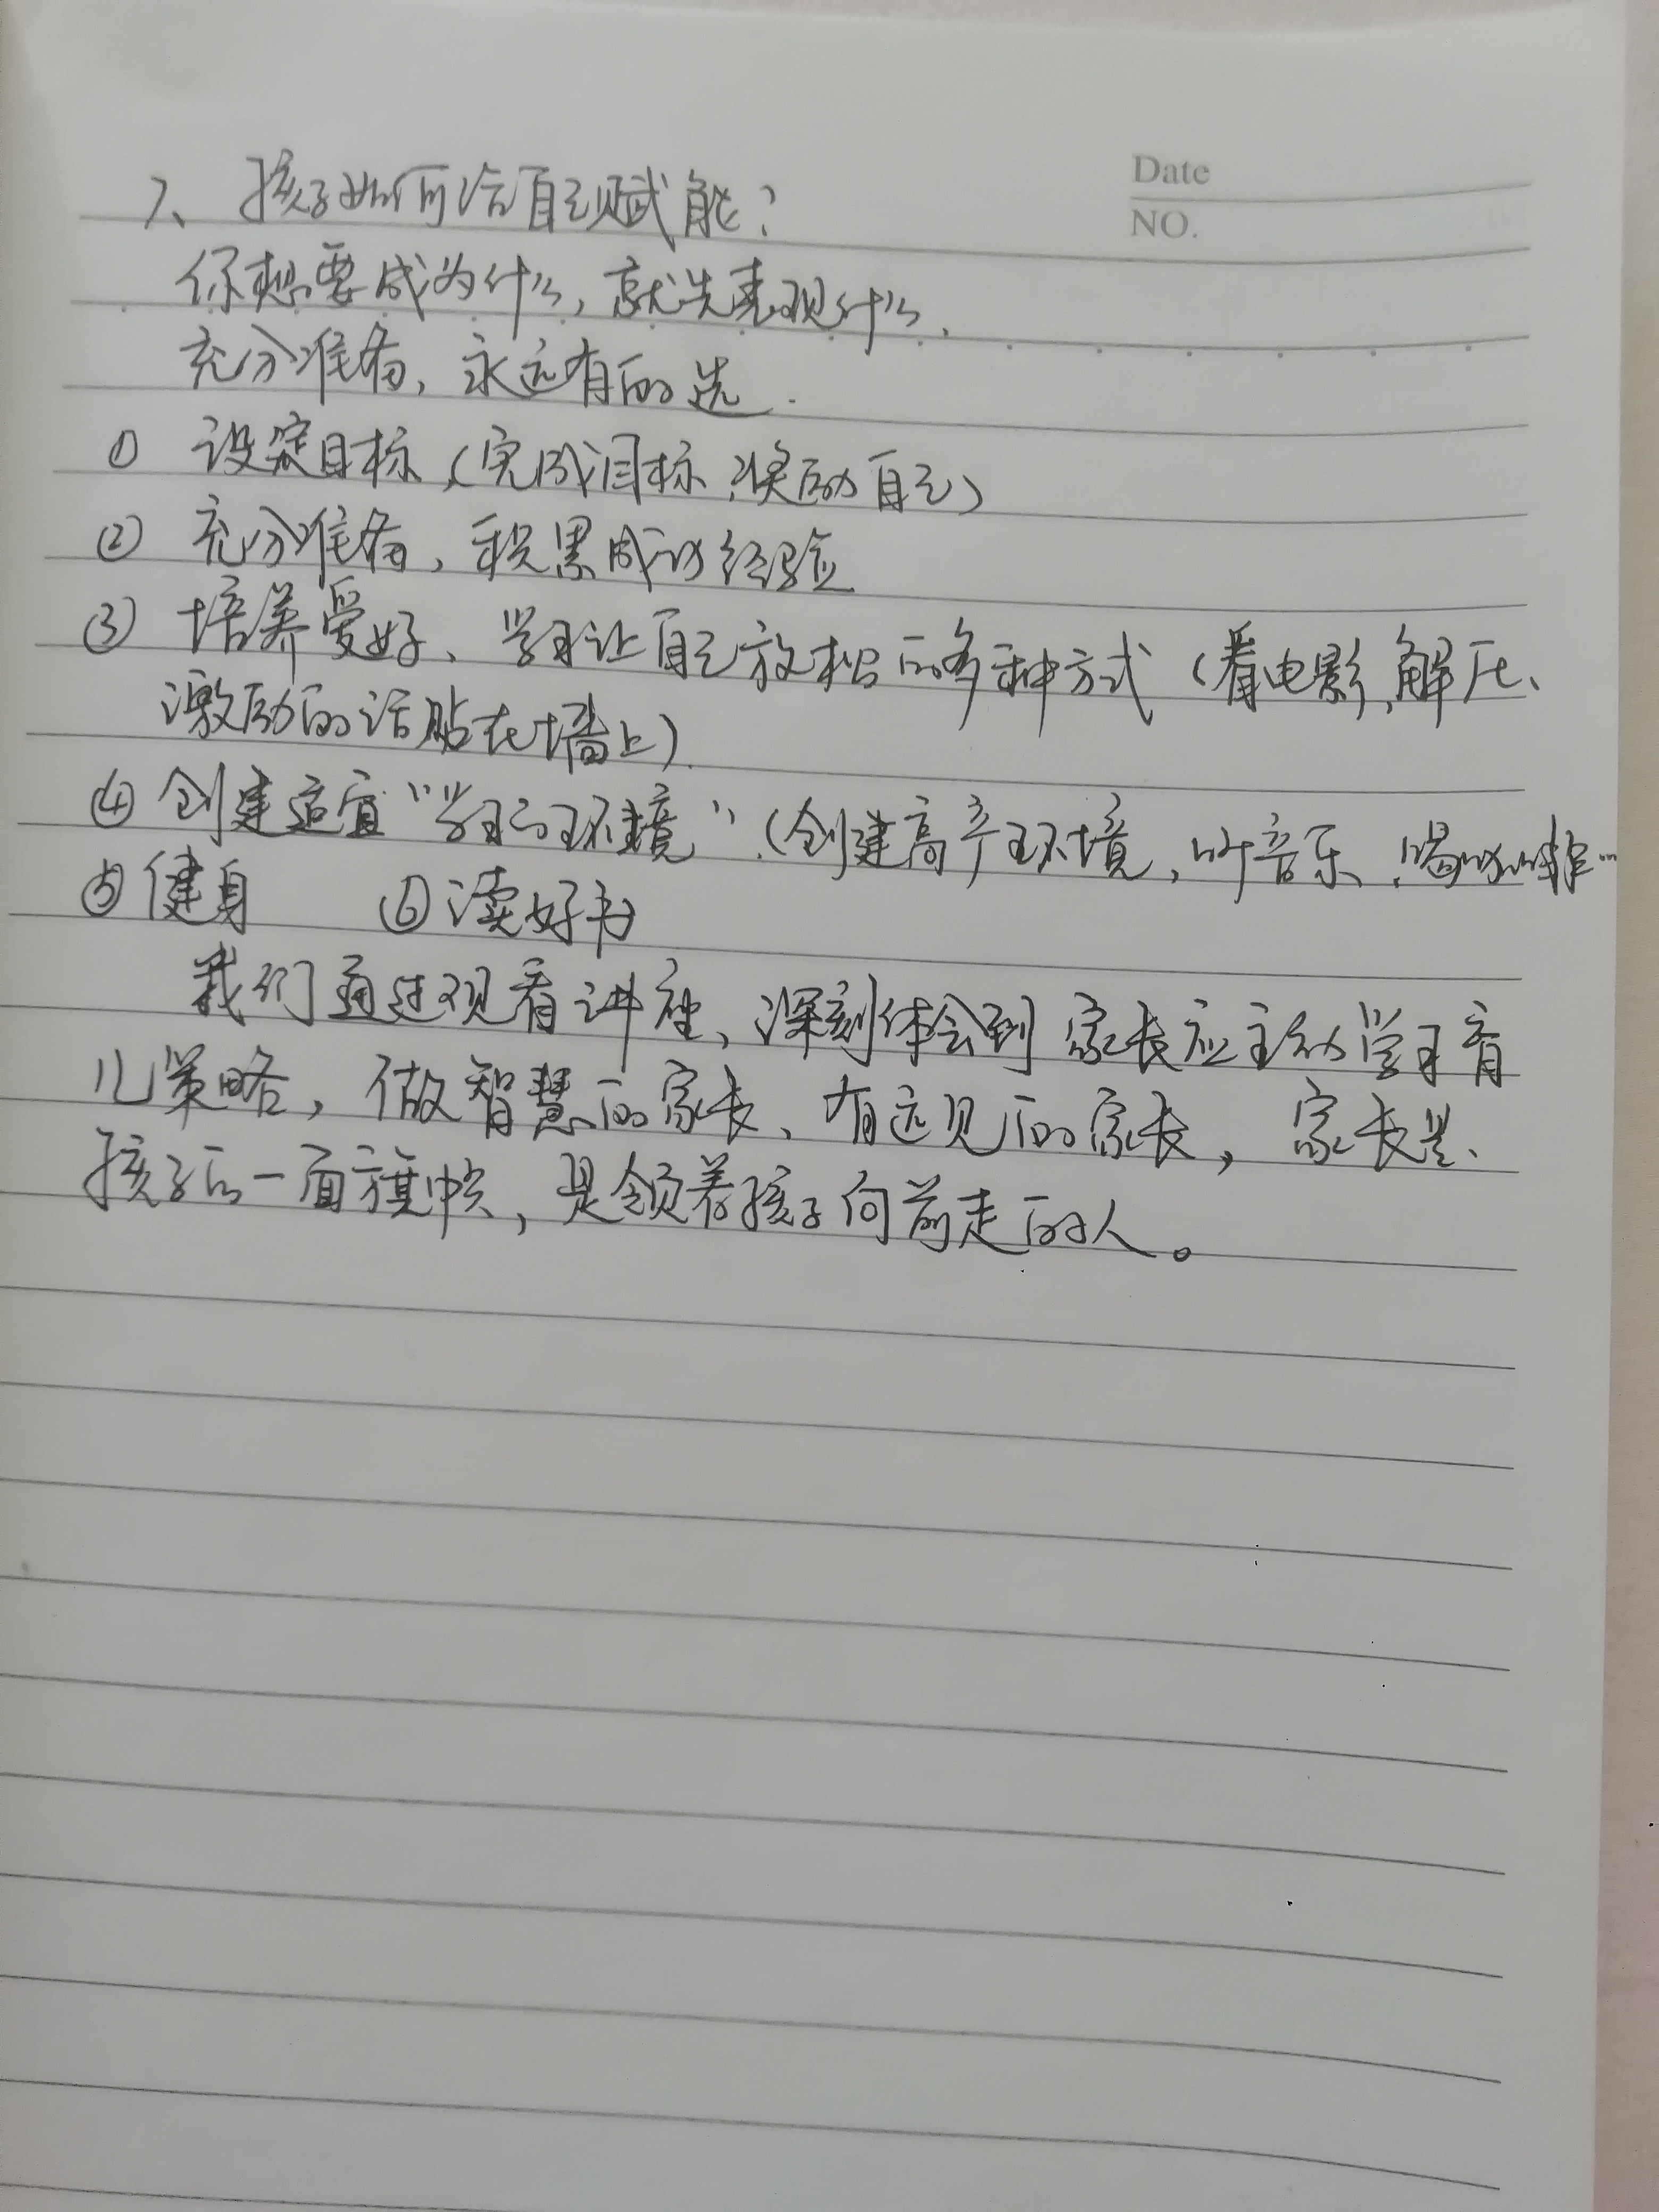 Date
NO.
7、孩子如何给自己赋能?
你想要成为什么,就先表现什么.
充分准备,永远有的选.
① 设定目标,(完成目标,奖励自己)
② 充分准备,积累成功经验
③ 培养爱好、学习让自己放松的多种方式(看电影,解压、
激励的话贴在墙上)
④ 创建适宜“学习的环境”.(创建高产环境,听音乐,喝咖啡…
⑤ 健身 ⑥ 读好书
我们通过观看讲座,深刻体会到家长应主动学习育
儿策略,做智慧的家长、有远见的家长,家长是
孩子的一面旗帜,是领着孩子向前走的人。